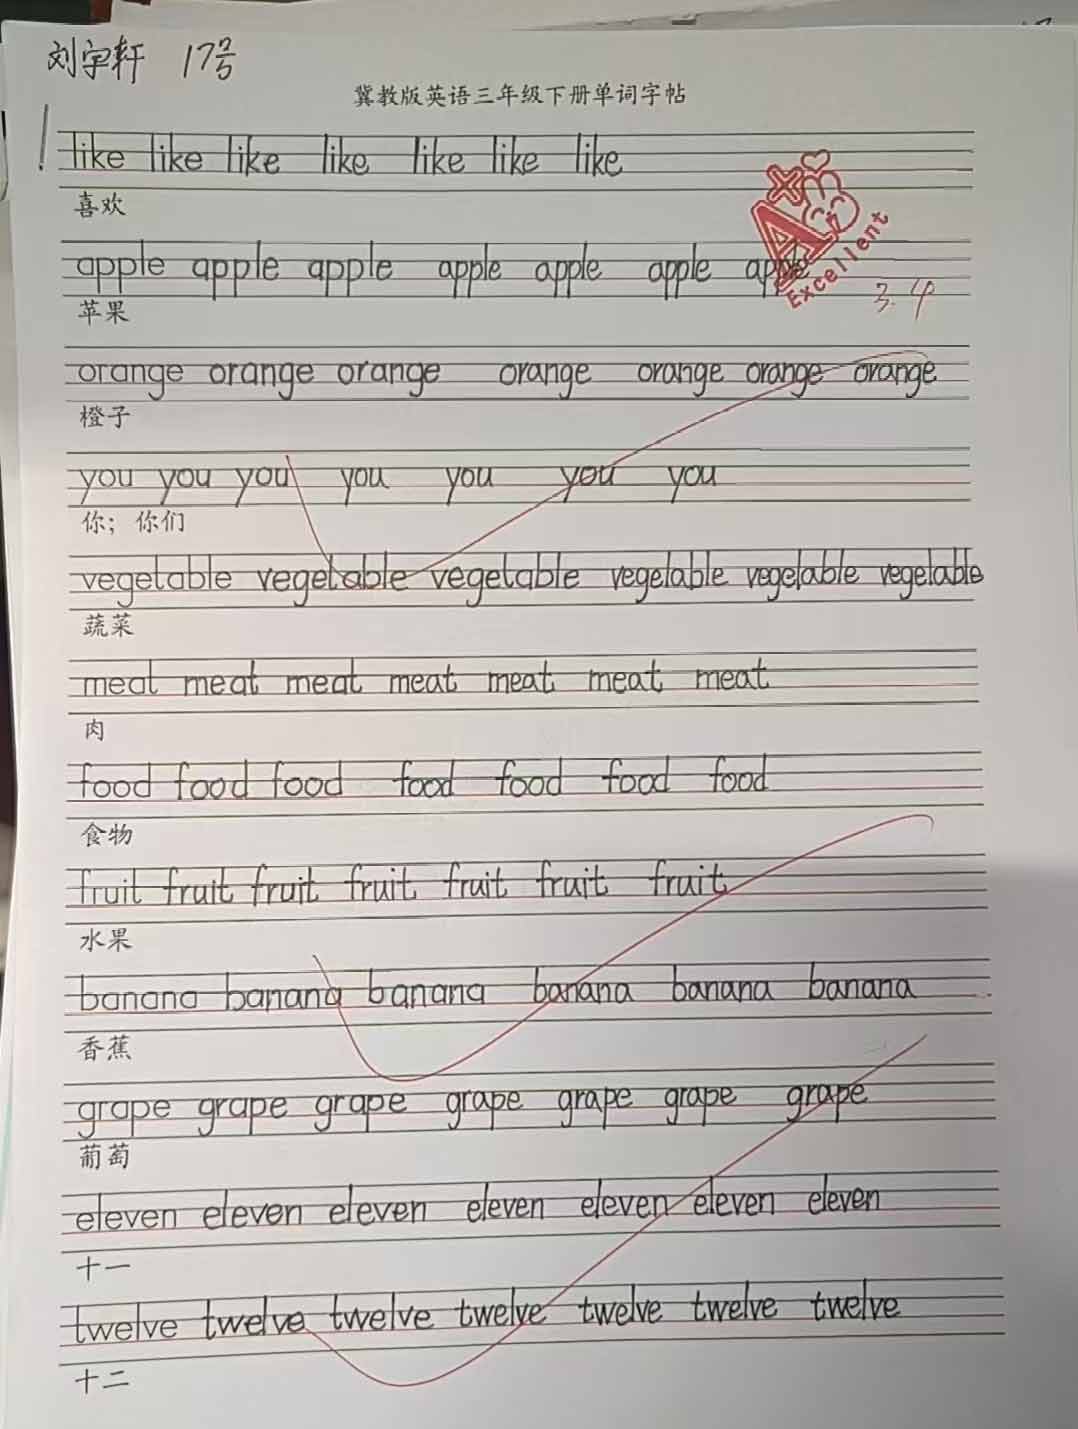 刘宇轩 17号
冀教版英语三年级下册单词字帖
like like like like like like like
喜欢
A+
Excellent
apple apple apple apple apple apple apple
3.4
苹果
orange orange orange orange orange orange orange
橙子
you you you you you you you
你；你们
vegetable vegetable vegetable vegetable vegetable vegetable
蔬菜
meat meat meat meat meat meat meat
肉
food food food food food food food
食物
fruit fruit fruit fruit fruit fruit fruit
水果
banana banana banana banana banana banana
香蕉
grape grape grape grape grape grape grape
葡萄
eleven eleven eleven eleven eleven eleven eleven
十一
twelve twelve twelve twelve twelve twelve twelve
十二